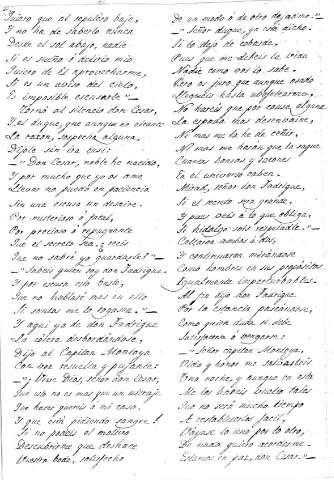 Quiero que al sepulcro baje,
Y no ha de saberlo nunca
Desde el sol abajo, nadie
Si es sueño ó delirio mio
Quiero de él aprovecharme,
Si es un aviso del cielo,
Es imposible escusarle"—
Tornó al silencio don Cesar,
Y el duque, que aunque no alcance
La razon, sospecha alguna,
Díjole sin ira casi:
—"Don Cesar, noble he nacido,
Y por mucho que yo os ame
Llevar no puedo en paciencia
Sin una escusa un desaire.
Por misterioso ó fatal,
Por precioso ó repugnante
Que el secreto sea, ¿creeis
Que no sabré yo guardarle?"
—"Sabeis quien soy don Fadrique
Y por escusa esto basta,
Que no hablaré mas en ello
Si santos me lo rogasen."—
Y aqui ya de don Fadrique
La cólera desbordándose,
Dijo al Capitan Montoya
Con voz resuelta y pujante:
—"¡Vive Dios, señor don Cesar,
Que esto no es mas que un ultraje
Que hacer quereis á mi casa,
Y que está pidiendo sangre!
Si no podeis el motivo
Descubrirme que deshace
Vuestra boda, satisfecho
De un modo ó de otro dejadme."—
—"Señor duque, ya está dicho.
Si lo dejo de cobarde,
Puesto que me debeis la vida
Nadie como vos lo sabe.
Pero os juro que aunque osado
Llegueis hasta abofetearme,
No hareis que por causa alguna
La espada mas desenvaine,
Ni mas me la he de ceñir,
Ni mas me harán que la saque
Cuantas honras y razones
En el universo caben.
Mirad, señor don Fadrique,
Si el secreto será grande,
Y pues veis á lo que obliga,
Si hidalgo sois respetadle."—
Callaron ambos á dos,
Y continuaron mirándose
Como hombres en sus propósitos
Igualmente imperturbables.
Al fin dijo don Fadrique
Por la estancia paseándose,
Como quien duda si debe
Satisfacerse ó vengarse:
—"Señor capitan Montoya,
Vida y honor me salvásteis
Una noche, y aunque en esta
Me los habeis vuelto tales
Que no será mucho tiempo
A restablecerlos fácil,
Váyase lo uno por lo otro,
De nada quiero acordarme.
Estamos en paz, don Cesar."—